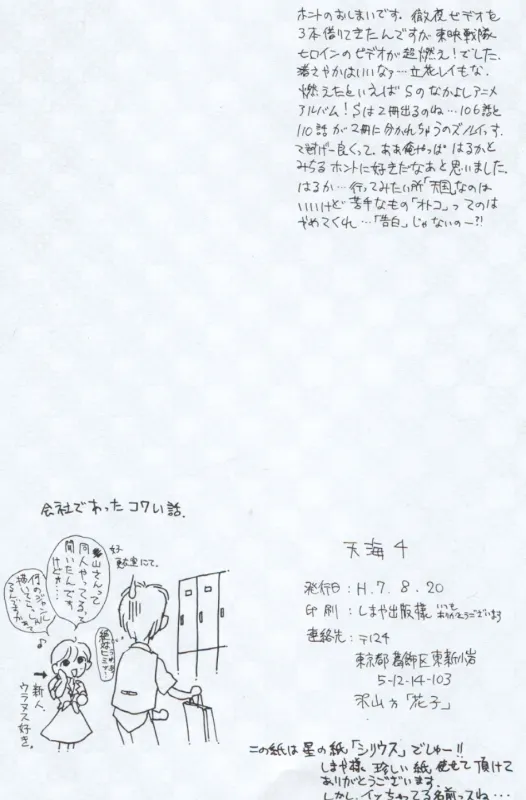 ホントのおしまいです。徹夜ビデオを
3本借りてきたんですが東映戦隊
ヒロインのビデオが超燃え!でした。
さやかはいいなァ…立花レイもな。
燃えたといえばSのなかよしアニメ
アルバム!Sは2冊出るのね…106話と
110話が2冊に分かれちゃうのズルイっす。
て凄げー良くって、ああ俺やっぱはるかと
みちるホントに好きだなあと思いました。
はるか…行ってみたい所「天国」なのは
いいけど苦手なもの「オトコ」ってのは
やめてくれ…「告白」じゃないのー?!
会社であったコワい話.
山さんって
同人やってるって
聞いたんです
けどォ……
何のジャンル
描いて
更衣室にて。
絶対ヒミツ
新人
ウラヌス好き。
天海 4
発行日:H.7.8.20
印刷:しまや出版様 いつも
ありがとうございます
連絡先:〒124
東京都葛飾区東新小岩
5-12-14-103
沢山方「花子」
この紙は星の紙「シリウス」でしゅー!!
しまや様 珍しい紙 使せて頂けて
ありがとうございます.
しかし、イッちゃってる名前ってね…